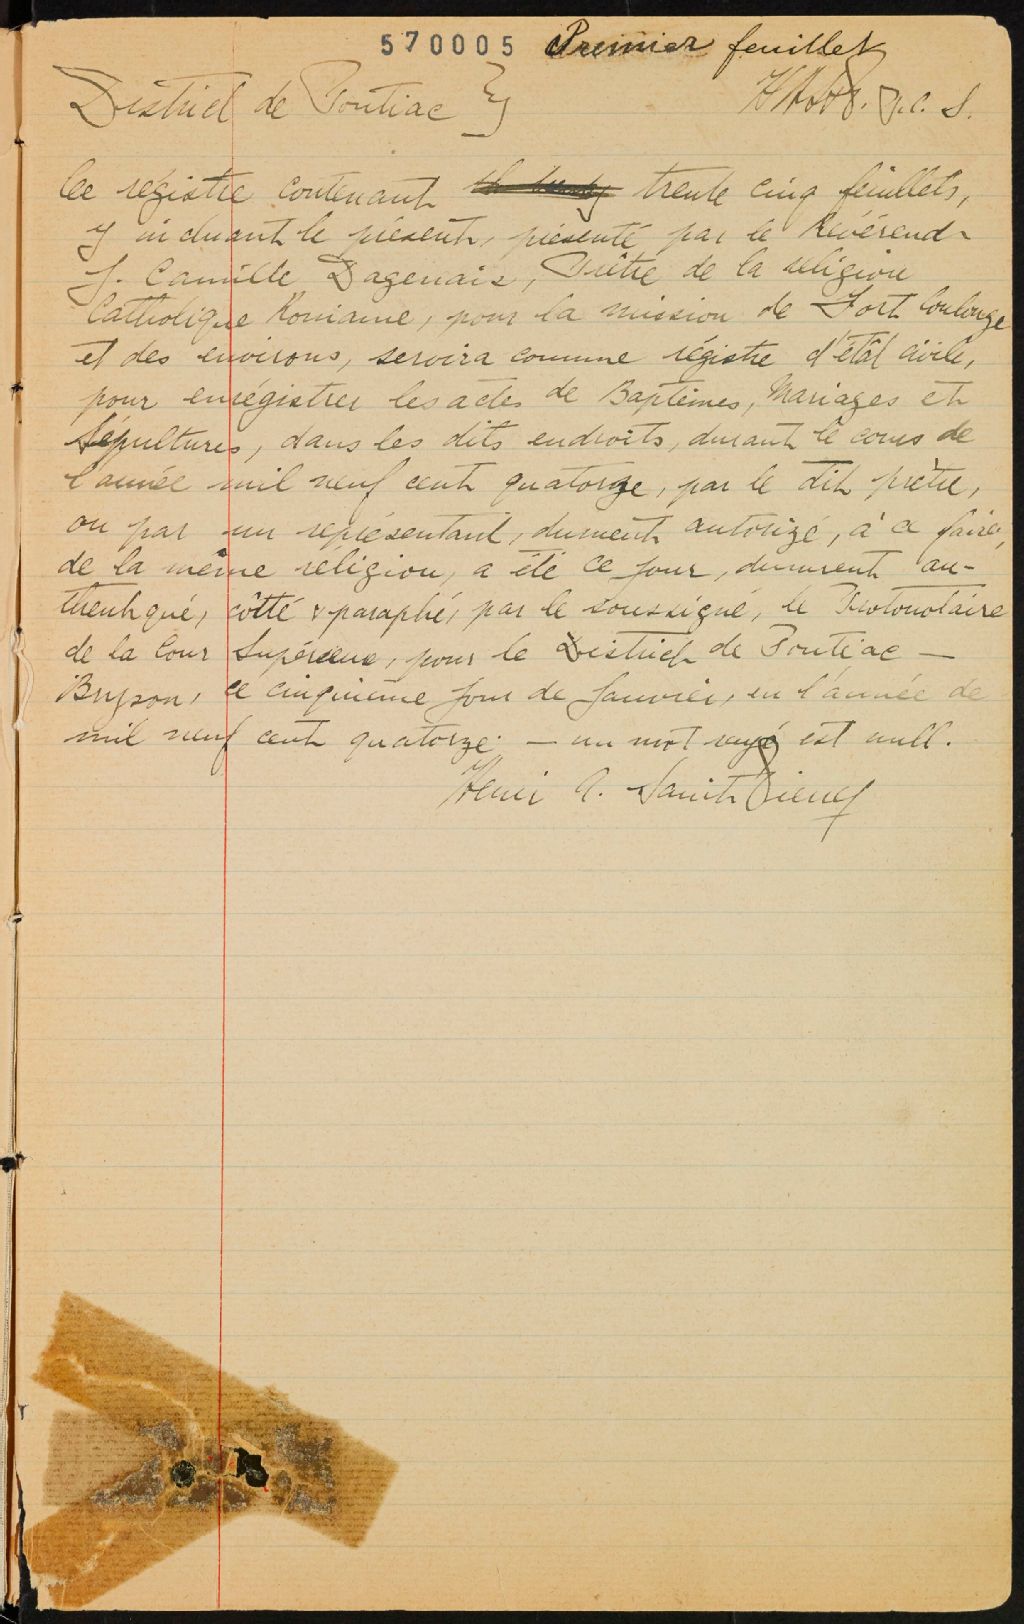 570005 Premier feuillet
District de Pontiac } P.C.S.
Ce régistre contenant trente cinq feuillets,
y incluant le présent, présenté par le Révérend
J. Camille Dagenais, Prêtre de la religion
Catholique Romaine, pour la mission de Fort Coulonge
et des environs, servira comme régistre d'état civile,
pour enrégistrer les actes de Baptêmes, Mariages et
Sépultures, dans les dits endroits, durant le cours de
l'année mil neuf cent quatorze, par le dit prêtre,
ou par un représentant, dument autorizé, à ce faire,
de la même religion, a été ce jour, dument au-
thentiqué, côtté & paraphé, par le soussigné, le Protonotaire
de la Cour Supérieure, pour le District de Pontiac —
Bryson, ce cinquième jour de Janvier, en l'année de
mil neuf cent quatorze. — un mot rayé est null.
Henri A. Saint Pierre